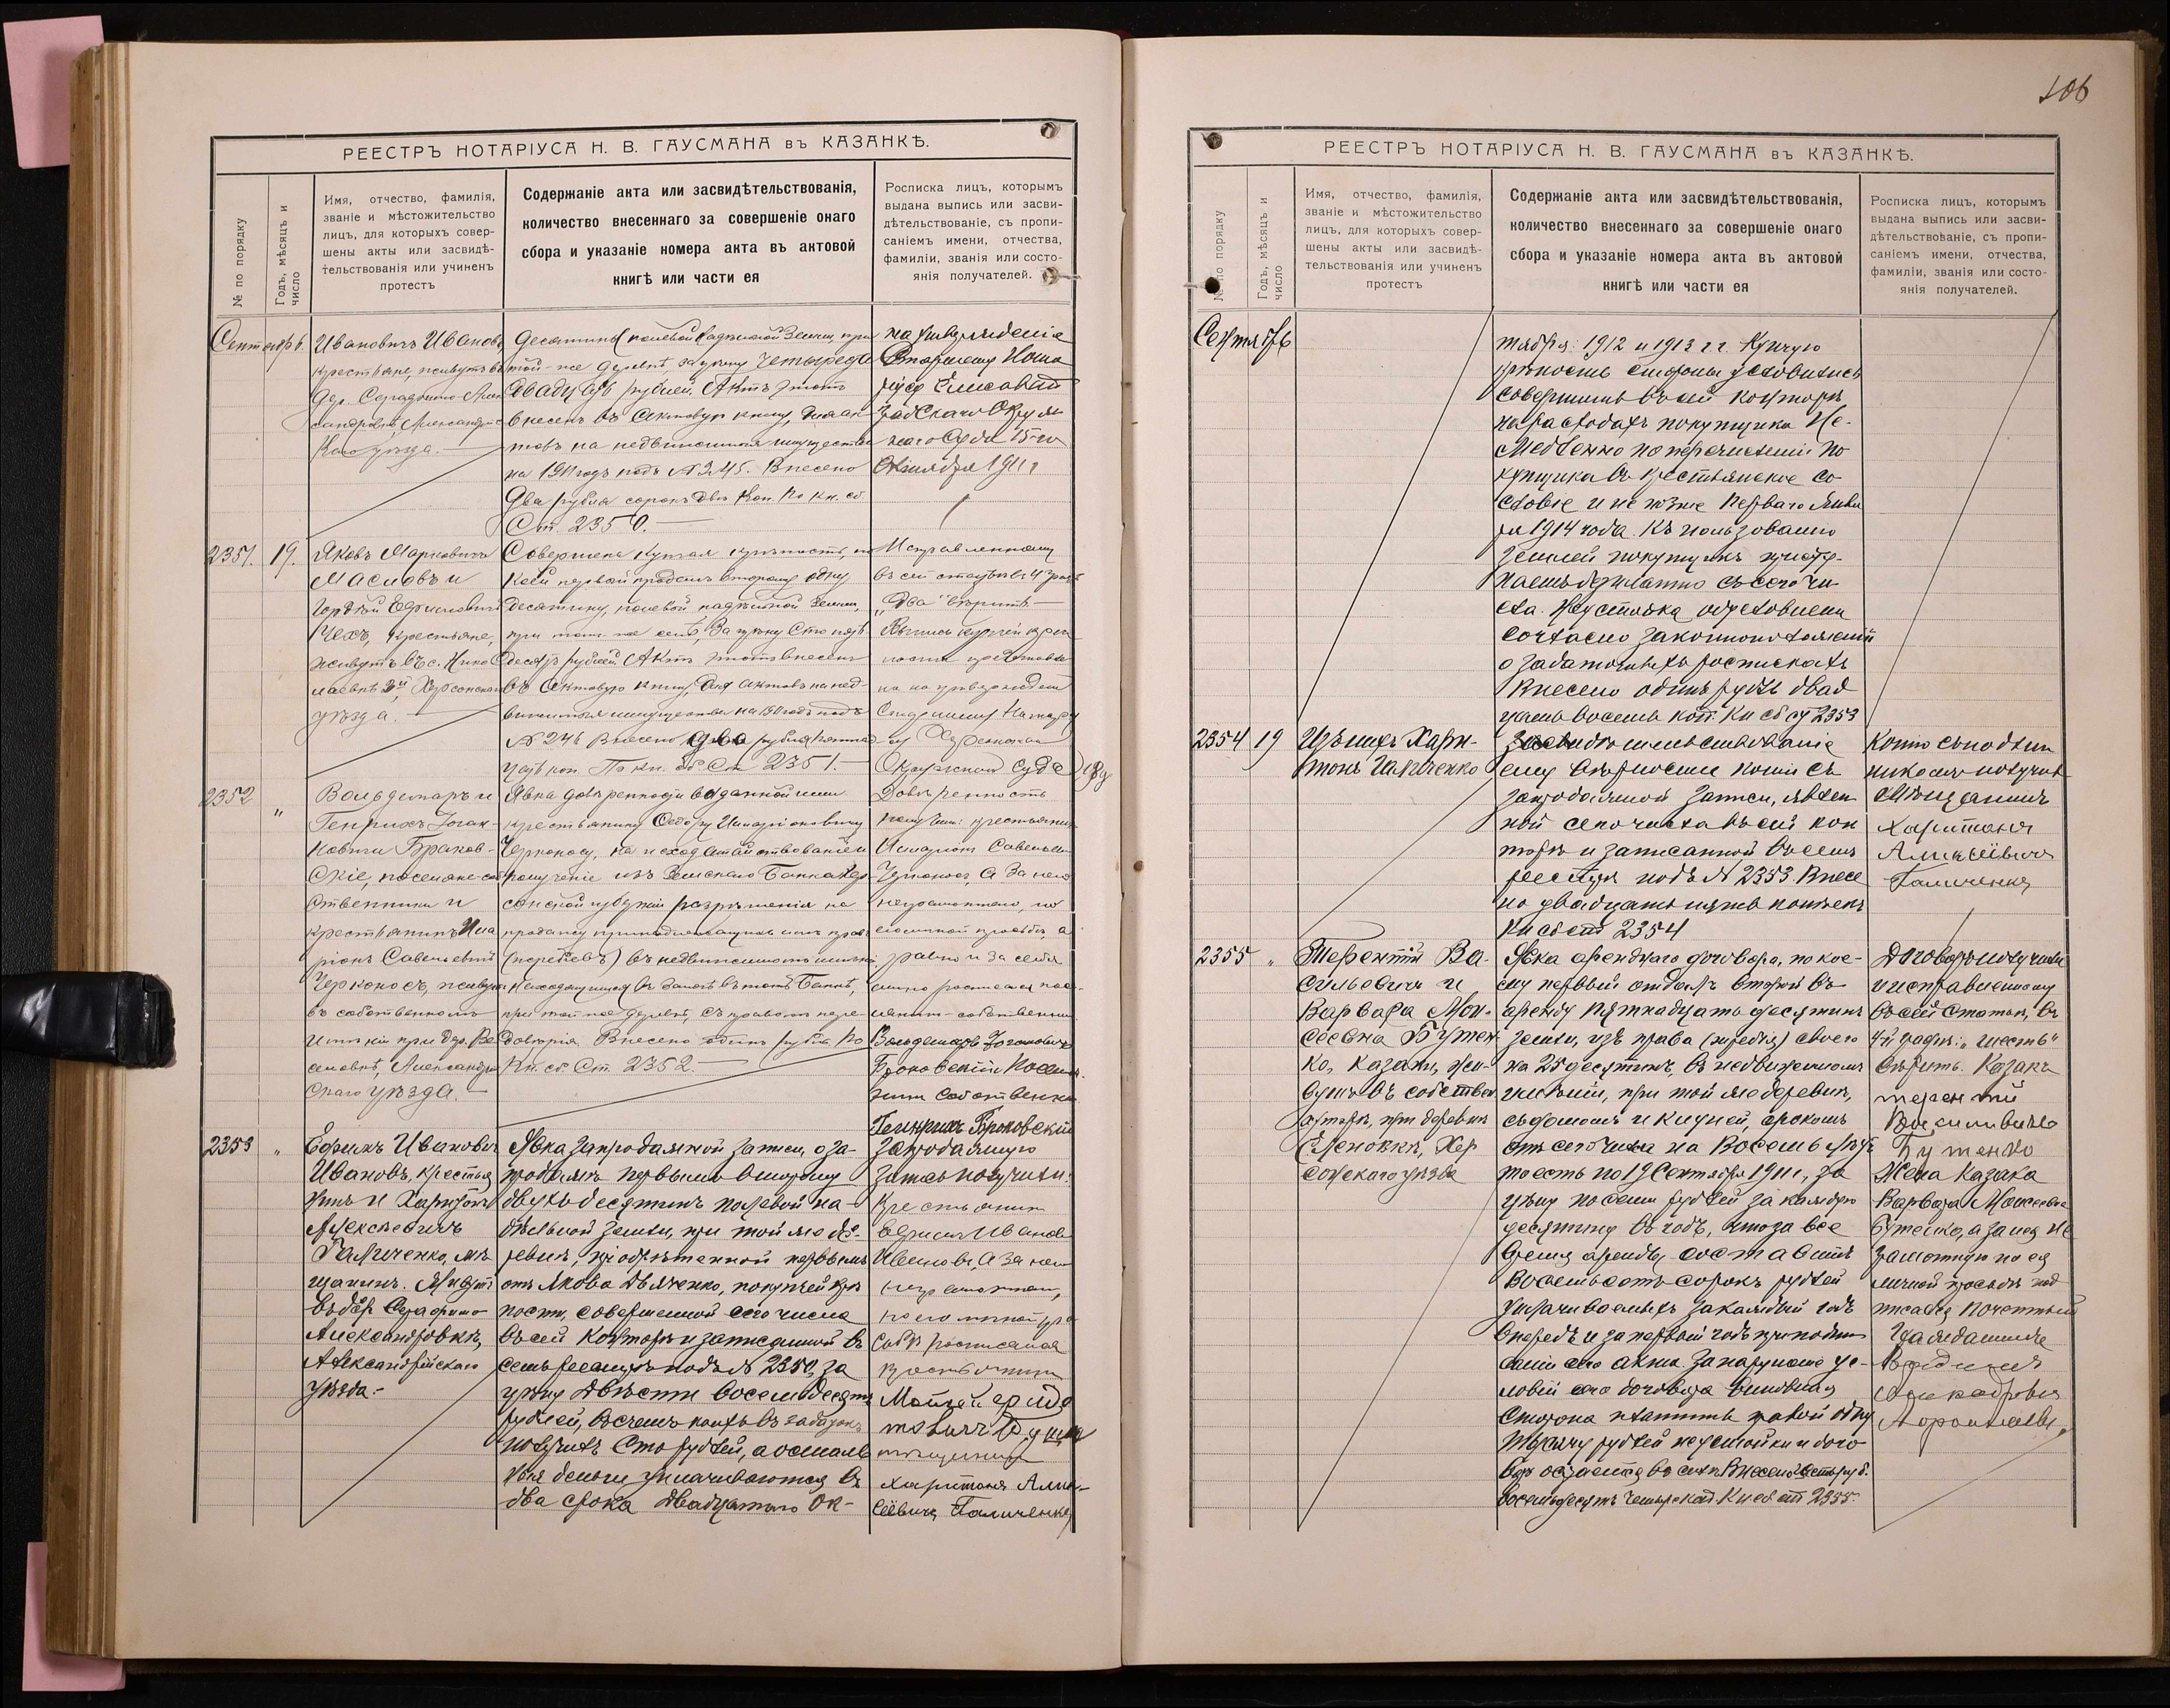 106
РЕЕСТРЪ НОТАРІУСА Н. В. ГАУСМАНА въ КАЗАНКѢ.
№ по порядку
Годъ, мѣсяцъ и
число
Имя, отчество, фамилія,
званіе и мѣстожительство
лицъ, для которыхъ совер-
шены акты или засвидѣ-
тельствованія или учиненъ
протестъ
Содержаніе акта или засвидѣтельствованія,
количество внесеннаго за совершеніе онаго
сбора и указаніе номера акта въ актовой
книгѣ или части ея
Росписка лицъ, которымъ
выдана выпись или засви-
дѣтельствованіе, съ пропи-
саніемъ имени, отчества,
фамиліи, званія или состо-
янія получателей.
Сентябрь
Ивановичъ Ивановъ
крестьяне, живутъ въ
дер. Серафимо-Алек
сандровкѣ, Александрій
скаго уѣзда.
десятины полевой надѣльной земли, при
той-же деревнѣ, за цѣну четыреста
двадцать рублей. Актъ этотъ
внесенъ въ актовую книгу, для ак-
товъ на недвижимыя имущества
на 1911 годъ подъ № 245. Внесено
Два рубля сорокъ двѣ коп. По кн. сб.
Ст. 2350.
на утвержденіе
Старшему Нота
ріусу Елисавет
градскаго Окруж
наго Суда 15-го
Октября 1911 г
2351.
19.
Яковъ Марковичъ
Масловъ и
Гордѣй Ефимовичъ
Чехъ, крестьяне,
живутъ въ с. Нико
лаевкѣ 2й, Херсонскаго
уѣзда.
Совершена купчая крѣпость, по
коей первый продалъ второму одну
десятину, полевой надѣльной земли,
при томъ же селѣ, за цѣну сто пять
десятъ рублей. Актъ этотъ внесенъ
въ актовую книгу, для актовъ на нед-
вижимыя имущества на 1911 годъ подъ
№ 246 Внесено два рубля
коп. По кн. сб. Ст. 2351.
Исправленному
въ сей статьѣ въ 4 графѣ
„Два" вѣрить.
Выпись купчей крѣ
пости представле
на на утвержденіе
Старшему Нотарі
усу Херсонскаго
Окружнаго Суда
2352
"
Вольдемаръ и
Генрихъ Іоган-
новичи Браков-
скіе, поселяне-соб
ственники и
крестьянинъ Ила
ріонъ Савельевичъ
Черконосъ, живутъ
въ собственномъ
имѣніи при дер. Ве
селовкѣ, Александрій
скаго уѣзда.
Явка довѣренности выданной ими
крестьянину Федору Иларіоновичу
Черконосу, на исходатайствованіе и
полученіе изъ Земскаго Банка Хер-
сонской губерніи разрѣшенія на
продажу принадлежащихъ имъ правъ
(жеребьевъ) въ недвижимомъ имѣніи
находящемся въ залогѣ въ томъ Банкѣ,
при той-же деревнѣ, съ правомъ пере-
довѣрія Внесено одинъ рубль По
Кн. сб. Ст. 2352.
Довѣренность
получили: крестьянинъ
Иларіонъ Савельевъ
Черконосъ, а за него
неграмотнаго, по
его личной просьбѣ, а
равно и за себя
лично росписался посе-
лянинъ-собственникъ
Вольдемаръ Іогановичъ
Броковскій Поселя
нинъ собственникъ
Генрихъ Броковскій
2353
"
Ефимъ Ивановичъ
Ивановъ, крестья
нинъ и Харитонъ
Алексѣевичъ
Галиченко, мѣ
щанинъ. Живутъ
въ дер Серафимо-
Александровкѣ,
Александрійскаго
уѣзда.-
Явка запродажной записи, о за-
продажѣ первымъ второму
двухъ десятинъ полевой на-
дѣльной земли, при той же де-
ревнѣ, пріобрѣтенной первымъ
отъ Якова Дьяченко, по купчей крѣ
пости, совершенной сего числа
въ сей конторѣ и записанной въ
семъ реестрѣ подъ № 2350, за
цѣну Двѣсти восемьдесятъ
рублей, въ счетъ коихъ въ задатокъ
получилъ Сто рублей, а осталь
ныя деньги уплачиваются въ
два срока двадцатаго Ок-
Запродажную
запись получили:
Крестьянинъ
Ефимъ Ивановъ
Ивановъ, а за него
неграмотнаго,
по его личной про
сьбѣ росписался
крестьянинъ
Харитонъ Алек-
сѣевичъ Галиченко
РЕЕСТРЪ НОТАРІУСА Н. В. ГАУСМАНА въ КАЗАНКѢ.
№ по порядку
Годъ, мѣсяцъ и
число
Имя, отчество, фамилія,
званіе и мѣстожительство
лицъ, для которыхъ совер-
шены акты или засвидѣ-
тельствованія или учиненъ
протестъ
Содержаніе акта или засвидѣтельствованія,
количество внесеннаго за совершеніе онаго
сбора и указаніе номера акта въ актовой
книгѣ или части ея
Росписка лицъ, которымъ
выдана выпись или засви-
дѣтельствованіе, съ пропи-
саніемъ имени, отчества,
фамиліи, званія или состо-
янія получателей.
Сентябрь
тября 1912 и 1913 г.г. Купчую
крѣпость стороны условились
совершить въ сей конторѣ
на расходахъ покупщика Не-
медленно по перечисленіи по
купщика въ крестьянское со
словіе и не позже перваго Янва
ря 1914 года. Къ пользованію
землей покупщикъ присту-
паетъ безплатно съ сего чи-
сла. Неустойка обусловлена
согласно законоположеній
о задаточныхъ роспискахъ
Внесено одинъ рубль двад
цать восемь коп. Кн сб ст 2353
2354
19
Изъ нихъ Хари-
тонъ Галиченко
Засвидѣтельствованіе
ему вѣрности копіи съ
запродажной записи, явлен
ной сего числа въ сей кон
торѣ и записанной въ семъ
реестрѣ подъ № 2353. Внесе
но двадцать пять копѣекъ
Кн сб ст 2354
Копію съ подлин
никомъ получилъ
Мѣщанинъ
Харитонъ
Алексѣевичъ
Галиченко
2355
"
Терентій Ва-
сильевичъ и
Варвара Мои-
сеевна Бутен
ко, казаки, жи-
вутъ въ собствен
хуторѣ, при деревнѣ
Еленовкѣ, Хер
сонскаго уѣзда
Явка аренднаго договора, по кое-
му первый отдалъ второй въ
аренду пятнадцать десятинъ
земли, изъ права (жребія) своего
на 25 десятинъ, въ недвижимомъ
имѣніи, при той же деревнѣ,
съ домомъ и кухней, срокомъ
отъ сего числа на Восемь лѣтъ
то есть по 19 Сентября 1919, за
цѣну по семи рублей за каждую
десятину въ годъ, что за все
время аренды составитъ
Восемьсотъ сорокъ рублей
уплачиваемыхъ за каждый годъ
впередъ и за первый годъ при подпи
саніи сего акта. За нарушеніе ус-
ловій сего договора виновная
сторона платитъ правой одну
тысячу рублей неустойки и дого
воръ остается въ силѣ Внесено
восемьдесятъ четыре коп. Кн сб ст 2355.
Договоръ получили
и исправленному
въ сей статьѣ, въ
4й графѣ: „шесть"
вѣрить. Казакъ
терентій
Василивичъ
Бутенко
Жена Казака
Варвара Моисеевна
Бутенко, а за нея не
грамотную по ея
личной просьбѣ под
писался почетный
Гражданинъ